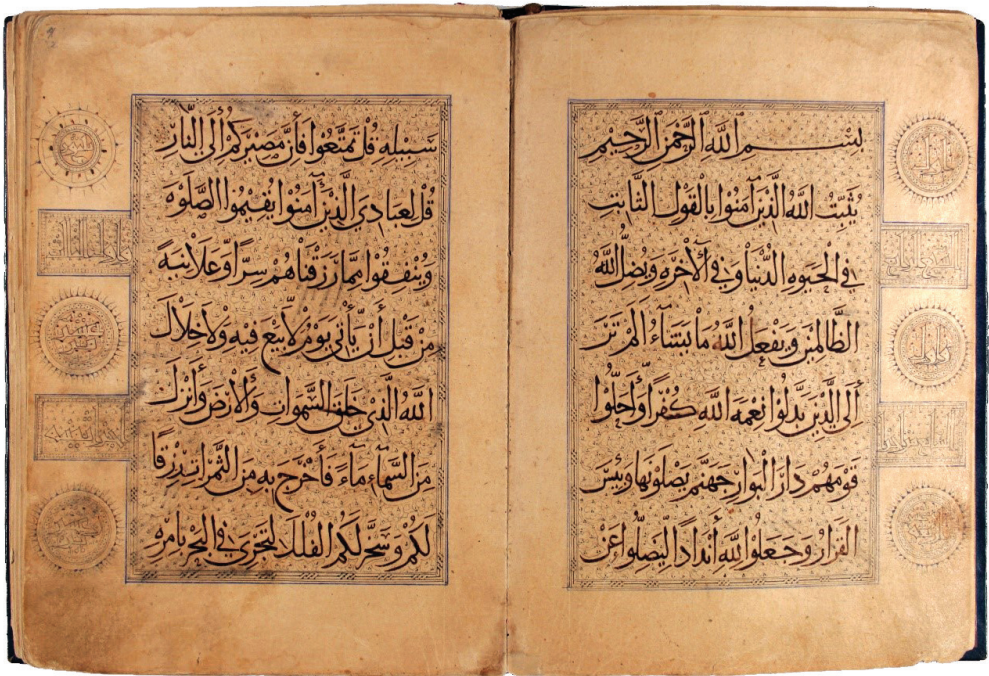 بِسْمِ اللَّهِ الرَّحْمَنِ الرَّحِيمِ
يُثَبِّتُ اللَّهُ الَّذِينَ آمَنُوا بِالْقَوْلِ الثَّابِتِ
فِي الْحَيَوةِ الدُّنْيَا وَفِي الْآخِرَةِ وَيُضِلُّ اللَّهُ
الظَّالِمِينَ وَيَفْعَلُ اللَّهُ مَا يَشَاءُ أَلَمْ تَرَ
إِلَى الَّذِينَ بَدَّلُوا نِعْمَةَ اللَّهِ كُفْرًا وَأَحَلُّوا
قَوْمَهُمْ دَارَ الْبَوَارِ جَهَنَّمَ يَصْلَوْنَهَا وَبِئْسَ
الْقَرَارُ وَجَعَلُوا لِلَّهِ أَنْدَادًا لِيَضِلُّوا عَنْ
سَبِيلِهِ قُلْ تَمَتَّعُوا فَإِنَّ مَصِيرَكُمْ إِلَى النَّارِ
قُلْ لِعِبَادِيَ الَّذِينَ آمَنُوا يُقِيمُوا الصَّلَوةَ
وَيُنْفِقُوا مِمَّا رَزَقْنَاهُمْ سِرًّا وَعَلَانِيَةً
مِنْ قَبْلِ أَنْ يَأْتِيَ يَوْمٌ لَا بَيْعٌ فِيهِ وَلَا خِلَالٌ
اللَّهُ الَّذِي خَلَقَ السَّمَوَاتِ وَالْأَرْضَ وَأَنْزَلَ
مِنَ السَّمَاءِ مَاءً فَأَخْرَجَ بِهِ مِنَ الثَّمَرَاتِ رِزْقًا
لَكُمْ وَسَخَّرَ لَكُمُ الْفُلْكَ لِتَجْرِيَ فِي الْبَحْرِ بِأَمْرِهِ